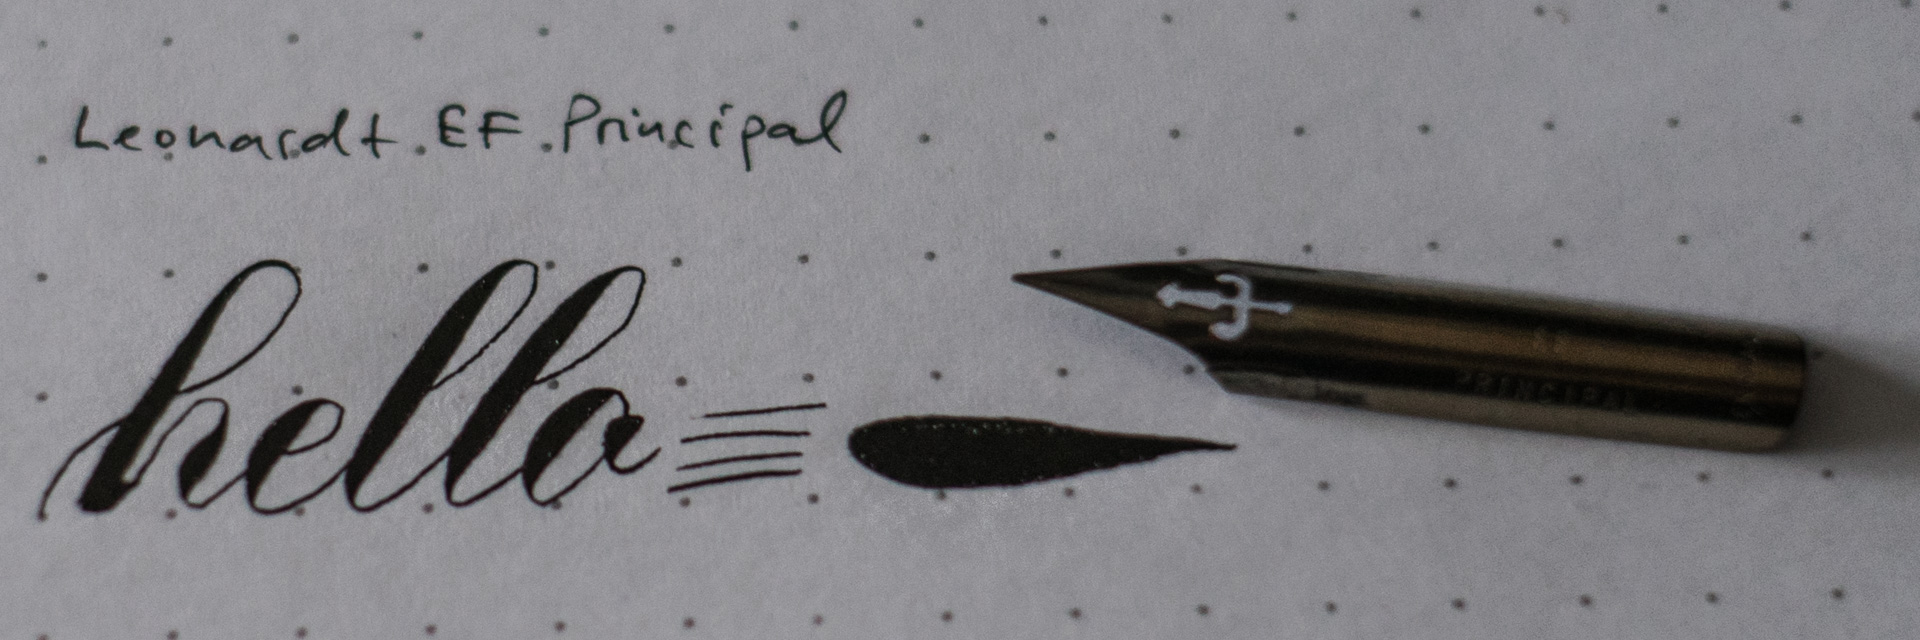 Leonardt EF Principal
hello
EF
PRINCIPAL